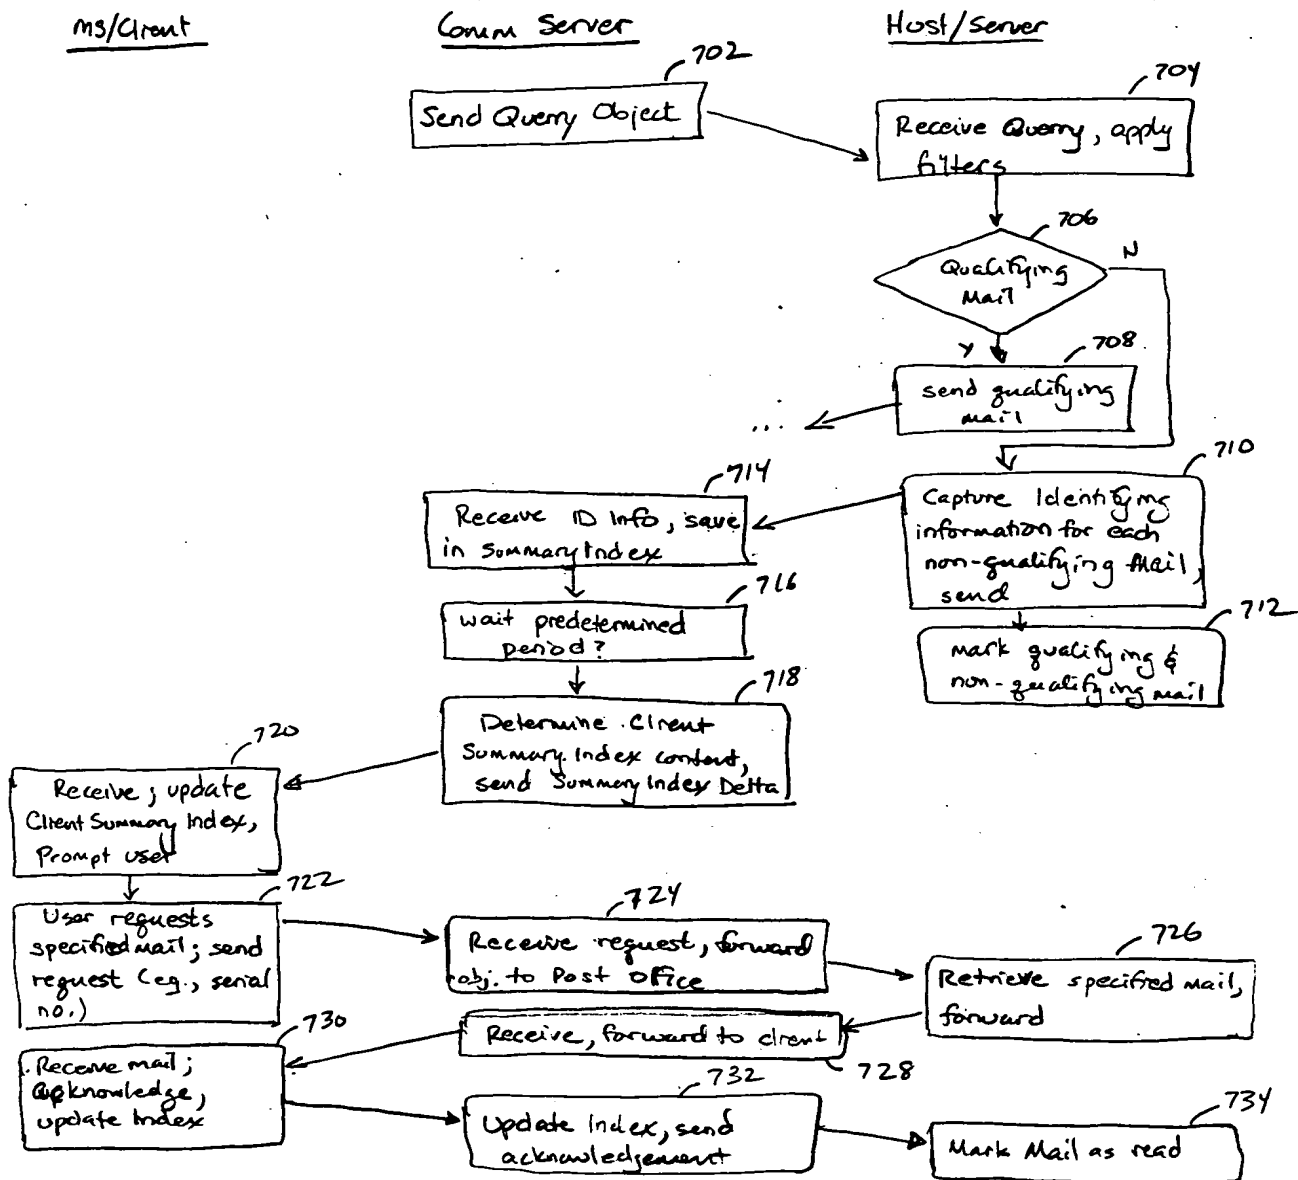 MS/Client
Comm Server
Host/Server
702
Send Query Object
704
Receive Query, apply
filters
706
N
Qualifying
Mail
Y
708
send qualifying
mail
...
710
Capture Identifying
information for each
non-qualifying Mail,
send
712
mark qualifying &
non-qualifying mail
714
Receive ID Info, save
in Summary Index
716
wait predetermined
period?
718
Determine Client
Summary Index content,
send Summary Index Delta
720
Receive; update
Client Summary Index,
Prompt user
722
User requests
specified mail; send
request (eg., serial
no.)
724
Receive request, forward
obj. to Post Office
726
Retrieve specified mail,
forward
Receive, forward to client
728
730
Receive mail;
acknowledge,
update Index
732
Update Index, send
acknowledgement
734
Mark Mail as read